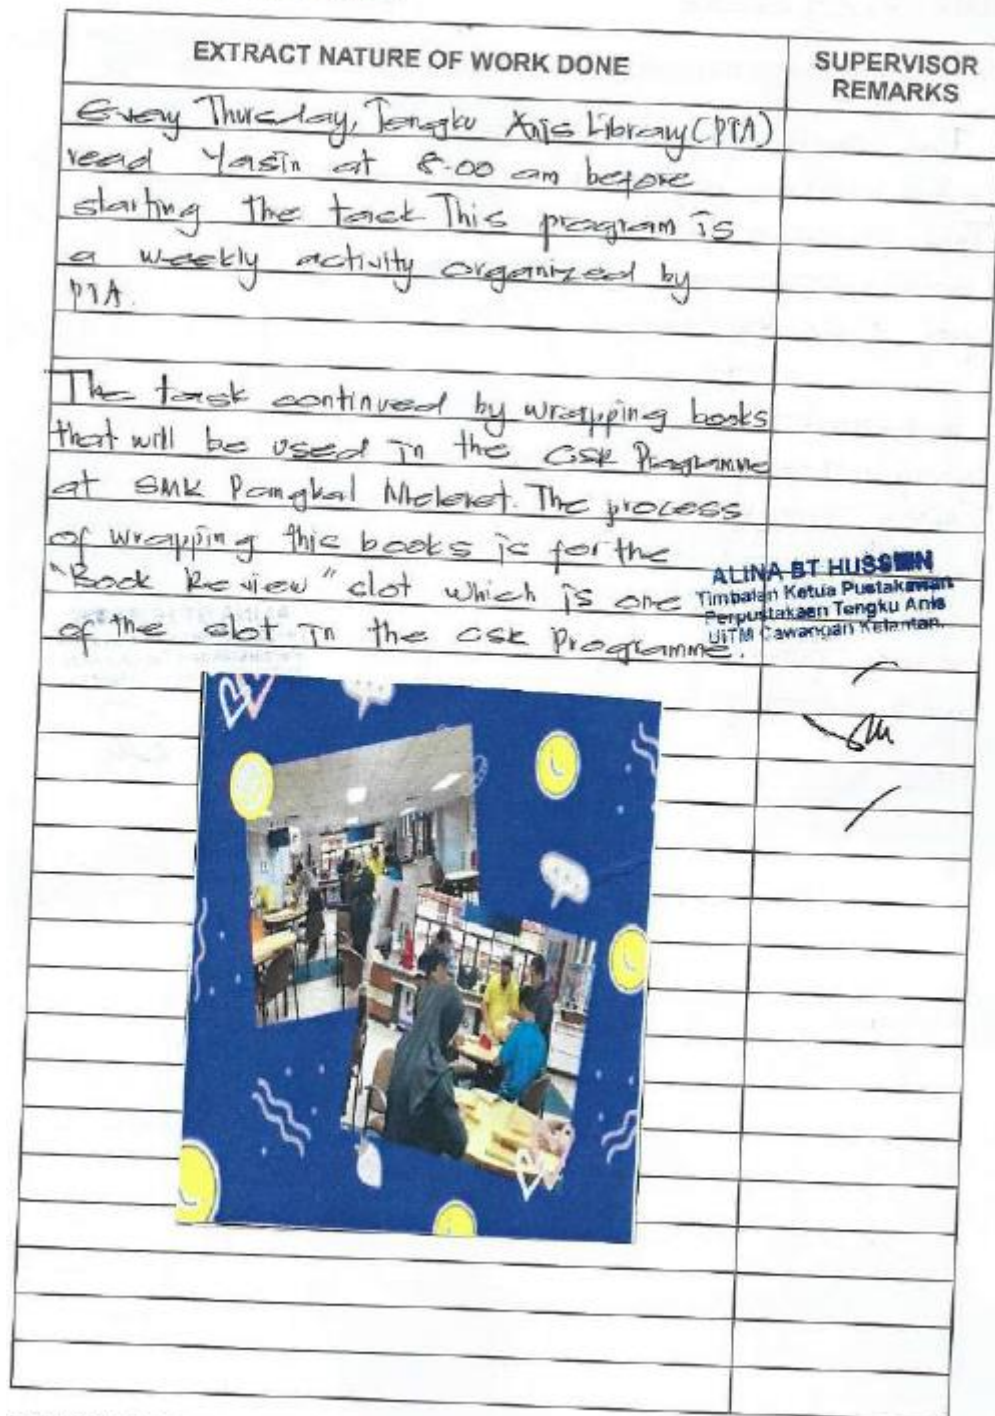 EXTRACT NATURE OF WORK DONE
SUPERVISOR REMARKS
Every Thursday, Tengku Anis Library (PTA)
read Yasin at 8.00 am before
starting the task This program is
a weekly activity organized by
PTA.
The task continued by wrapping books
that will be used in the CSR Programme
at SMK Pangkal Meleret. The process
of wrapping this books is for the
"Book Review" slot which is one
of the slot in the CSR Programme.
ALINA BT HUSSIN
Timbalan Ketua Pustakawan
Perpustakaan Tengku Anis
UiTM Cawangan Kelantan.